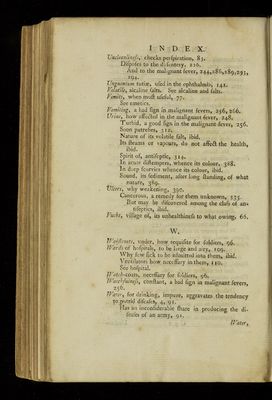 INDEX.
Uncleanliness, checks perspiration, 83.
Disposes to the dysentery, 226.
And to the malignant fever, 244, 286, 289, 293,
294.
Unguentum tutiæ, used in the ophthalmia, 141.
Volatile, alcaline salts. See alcaline and salts.
Vomits, when most useful, 77.
See emetics.
Vomiting, a bad sign in malignant fevers, 256, 266.
Urine, how affected in the malignant fever, 248.
Turbid, a good sign in the malignant fever, 256.
Soon putrefies, 312.
Nature of its volatile salt, ibid.
Its steams or vapours, do not affect the health,
ibid.
Spirit of, antiseptic, 314.
In acute distempers, whence its colour, 388.
In deep scurvies whence its colour, ibid.
Sound, its sediment, after long standing, of what
nature, 389.
Ulcers, why weakening, 397.
Cancerous, a remedy for them unknown, 335.
But may be discovered among the class of an-
tiseptics, ibid.
Vucht, village of, its unhealthiness to what owing, 66.
W.
Waistcoats, under, how requisite for soldiers, 96.
Wards of hospitals, to be large and airy, 109.
Why few sick to be admitted into them, ibid.
Ventilators how necessary in them, 110.
See hospital.
Watch-coats, necessary for soldiers, 96.
Watchfulness, constant, a bad sign in malignant fevers,
256.
Water, for drinking, impure, aggravates the tendency
to putrid diseases, 4, 91.
Has an inconsiderable share in producing the di-
seases of an army, 91.
Water,